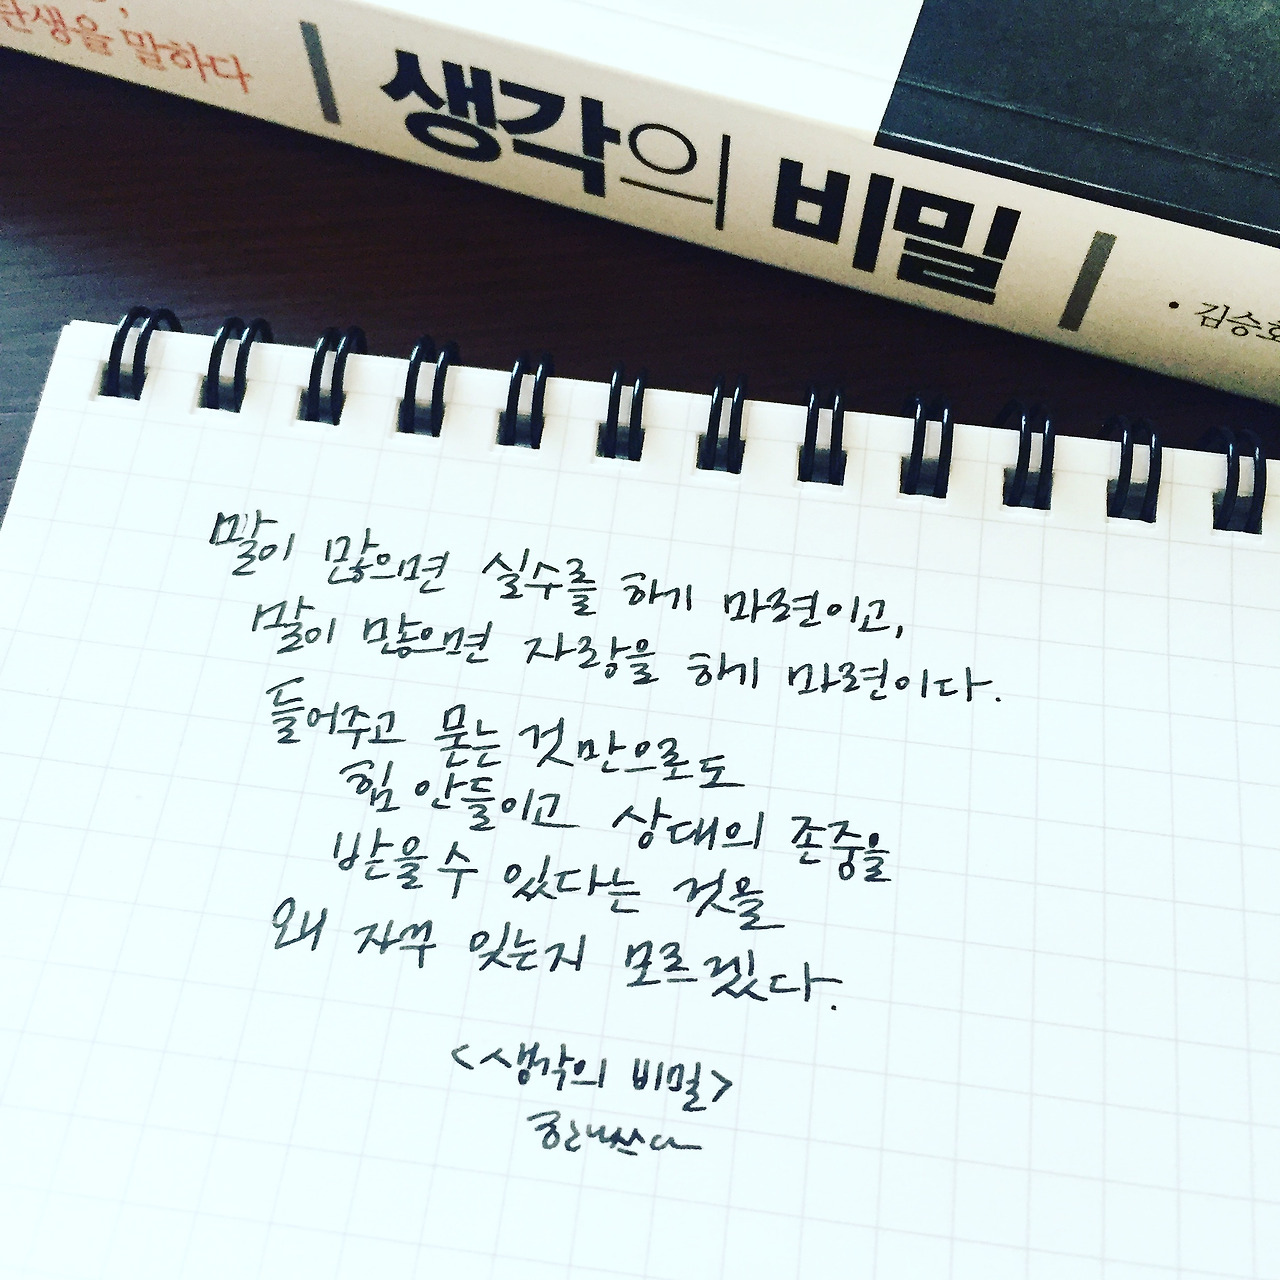 탄생을 말하다
생각의 비밀
• 김승호
말이 많으면 실수를 하기 마련이고,
말이 많으면 자랑을 하기 마련이다.
들어주고 묻는 것만으로도
힘 안들이고 상대의 존중을
받을 수 있다는 것을
왜 자꾸 잊는지 모르겠다.
<생각의 비밀>